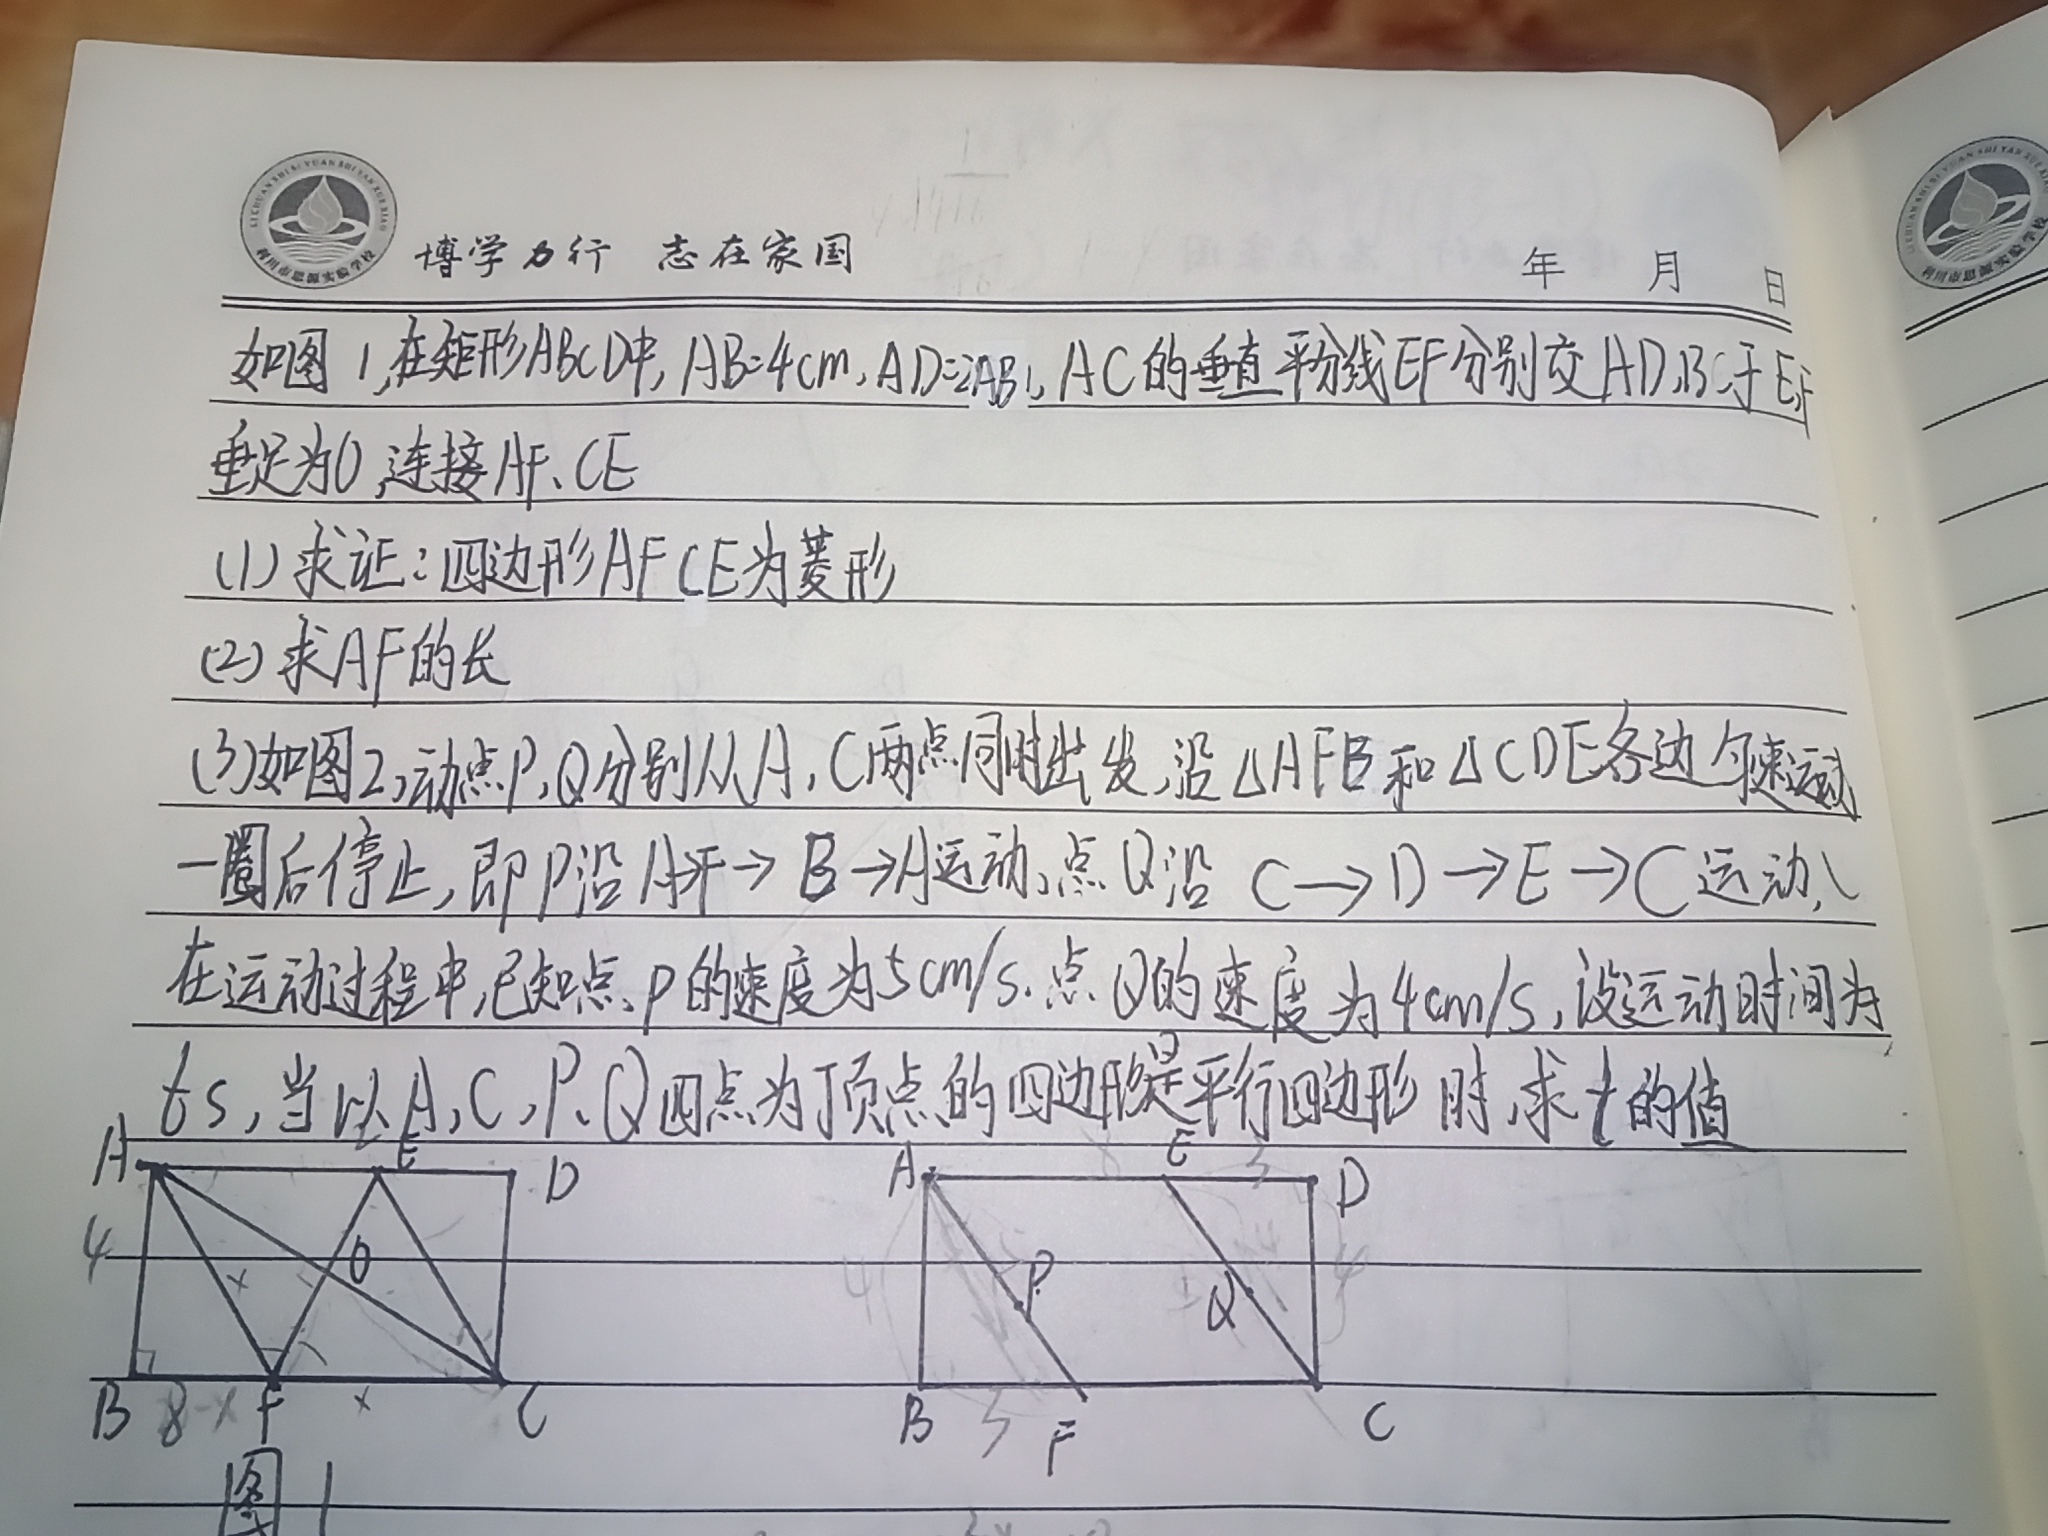 博学力行 志在家国
年 月 日
如图1,在矩形ABCD中,AB=4cm,AD=2AB,AC的垂直平分线EF分别交AD,BC于E,F
垂足为O,连接AF、CE
(1)求证:四边形AFCE为菱形
(2)求AF的长
(3)如图2,动点P,Q分别从A,C两点同时出发,沿△AFB和△CDE各边匀速运动
一圈后停止,即P沿A→F→B→A运动、点Q沿 C→D→E→C运动,
在运动过程中,已知点P的速度为5cm/s.点Q的速度为4cm/s,设运动时间为
ts,当以A,C,P、Q四点为顶点的四边形是平行四边形时,求t的值
A E D
4 x O
B 8-x F x C
图1
A 8 E 3 D
4 P Q 4
B 3 F C
利川市思源实验学校